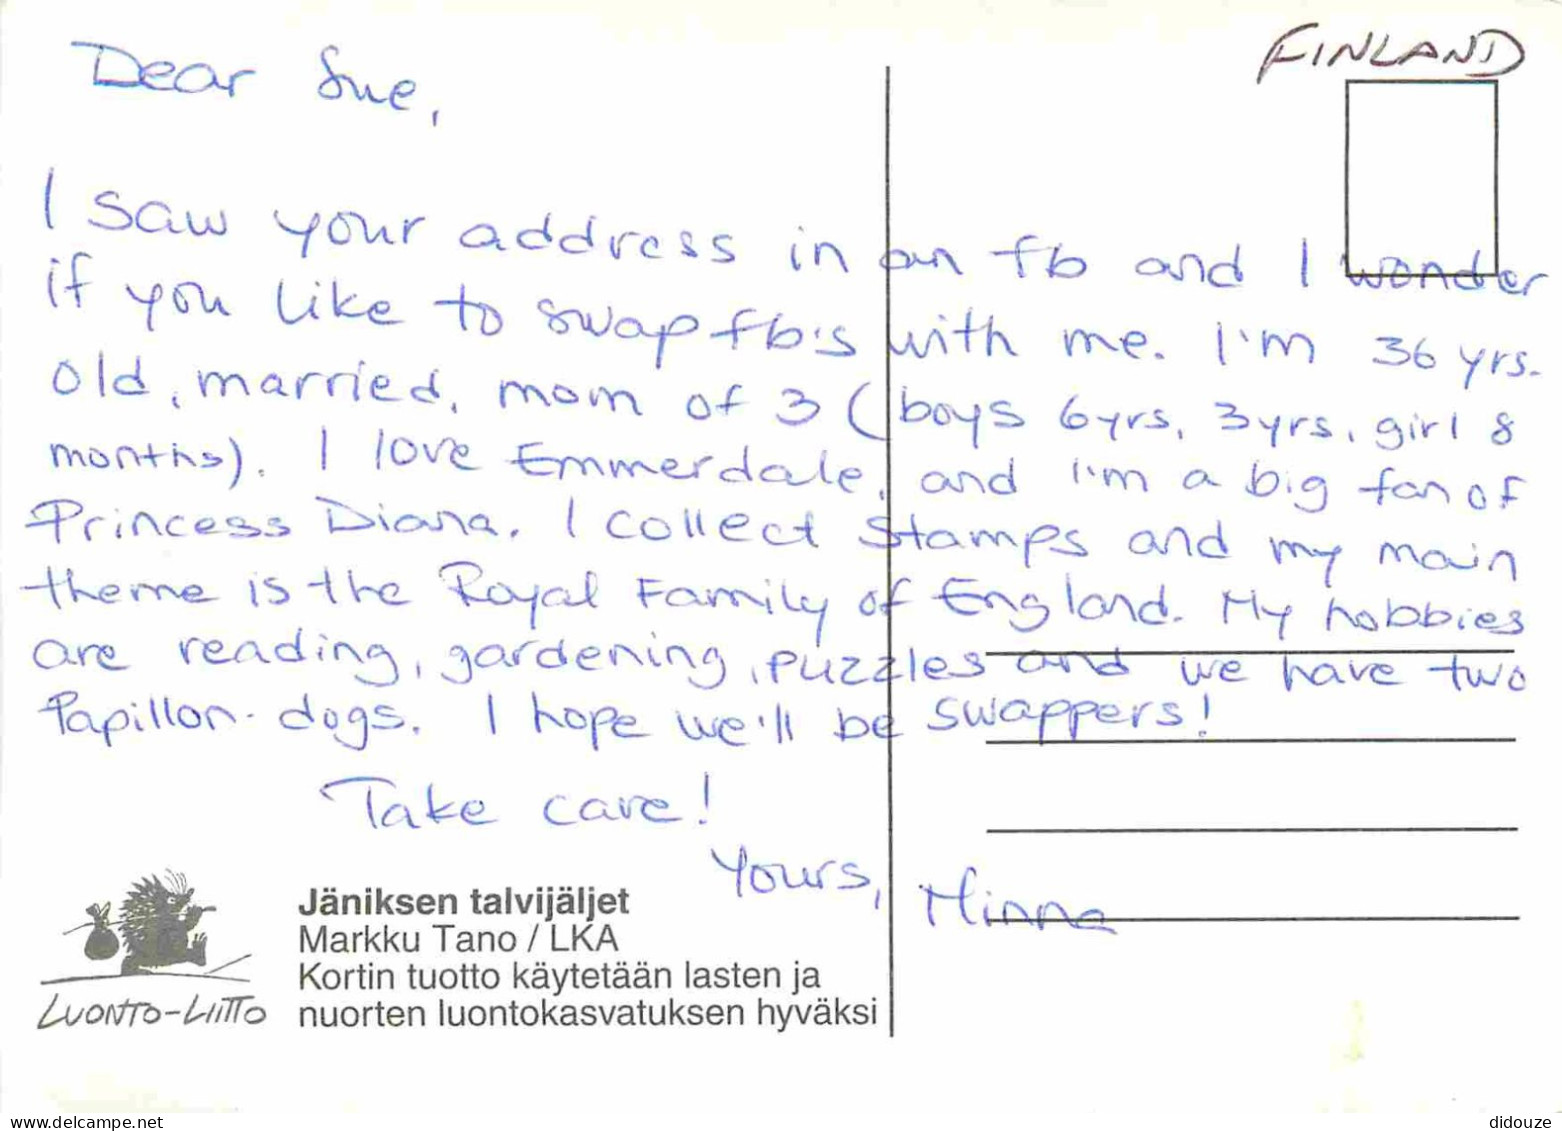 FINLAND
Dear Sue,
I saw your address in an fb and I wonder
if you like to swap fb's with me. I'm 36 yrs.
old, married, mom of 3 (boys 6yrs, 3yrs, girl 8
months). I love Emmerdale, and I'm a big fan of
Princess Diana. I collect stamps and my main
theme is the Royal Family of England. My hobbies
are reading, gardening, puzzles and we have two
Papillon-dogs. I hope we'll be swappers!
Take care!
Yours, Minna
LUONTO-LIITTO
Jäniksen talvijäljet
Markku Tano / LKA
Kortin tuotto käytetään lasten ja
nuorten luontokasvatuksen hyväksi
www.delcampe.net
didouze